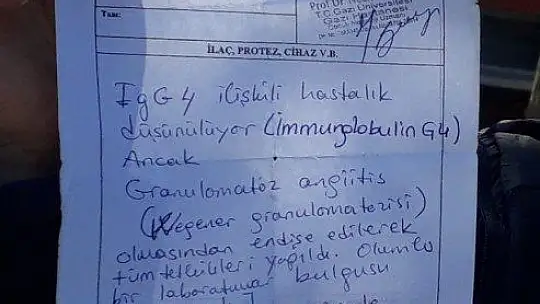 Prof. Dr.
T.C. Gazi Üniversitesi
Gazi Hastanesi
Tanı:
İLAÇ, PROTEZ, CİHAZ V.B.
IgG4 ilişkili hastalık
düşünülüyor (İmmunglobulin G4)
Ancak
Granulomatöz angiitis
(Wegener granulomatezisi)
olmasından endişe edilerek
tüm tetkikleri yapıldı. Olumlu
bir laboratuvar bulgusu